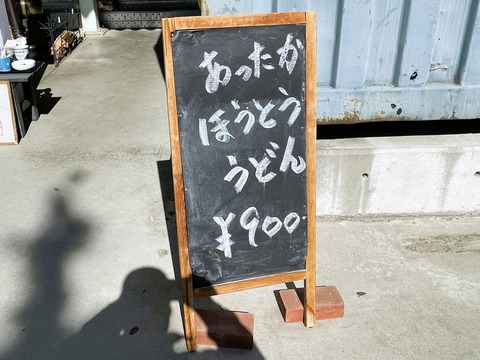 あったか
ほうとう
うどん
¥900